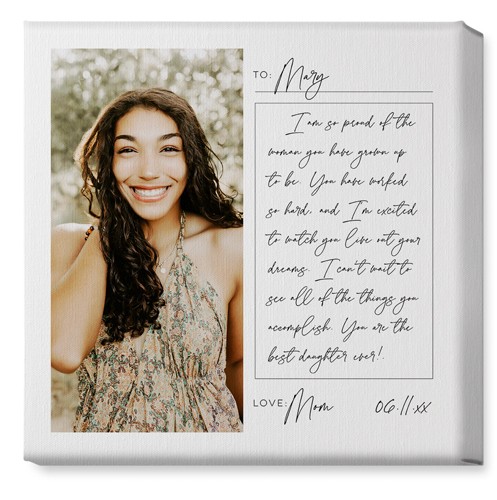 TO: Mary
I am so proud of the
woman you have grown up
to be. You have worked
so hard, and I'm excited
to watch you live out your
dreams. I can't wait to
see all of the things you
accomplish. You are the
best daughter ever!.
LOVE: Mom 06.11.xx